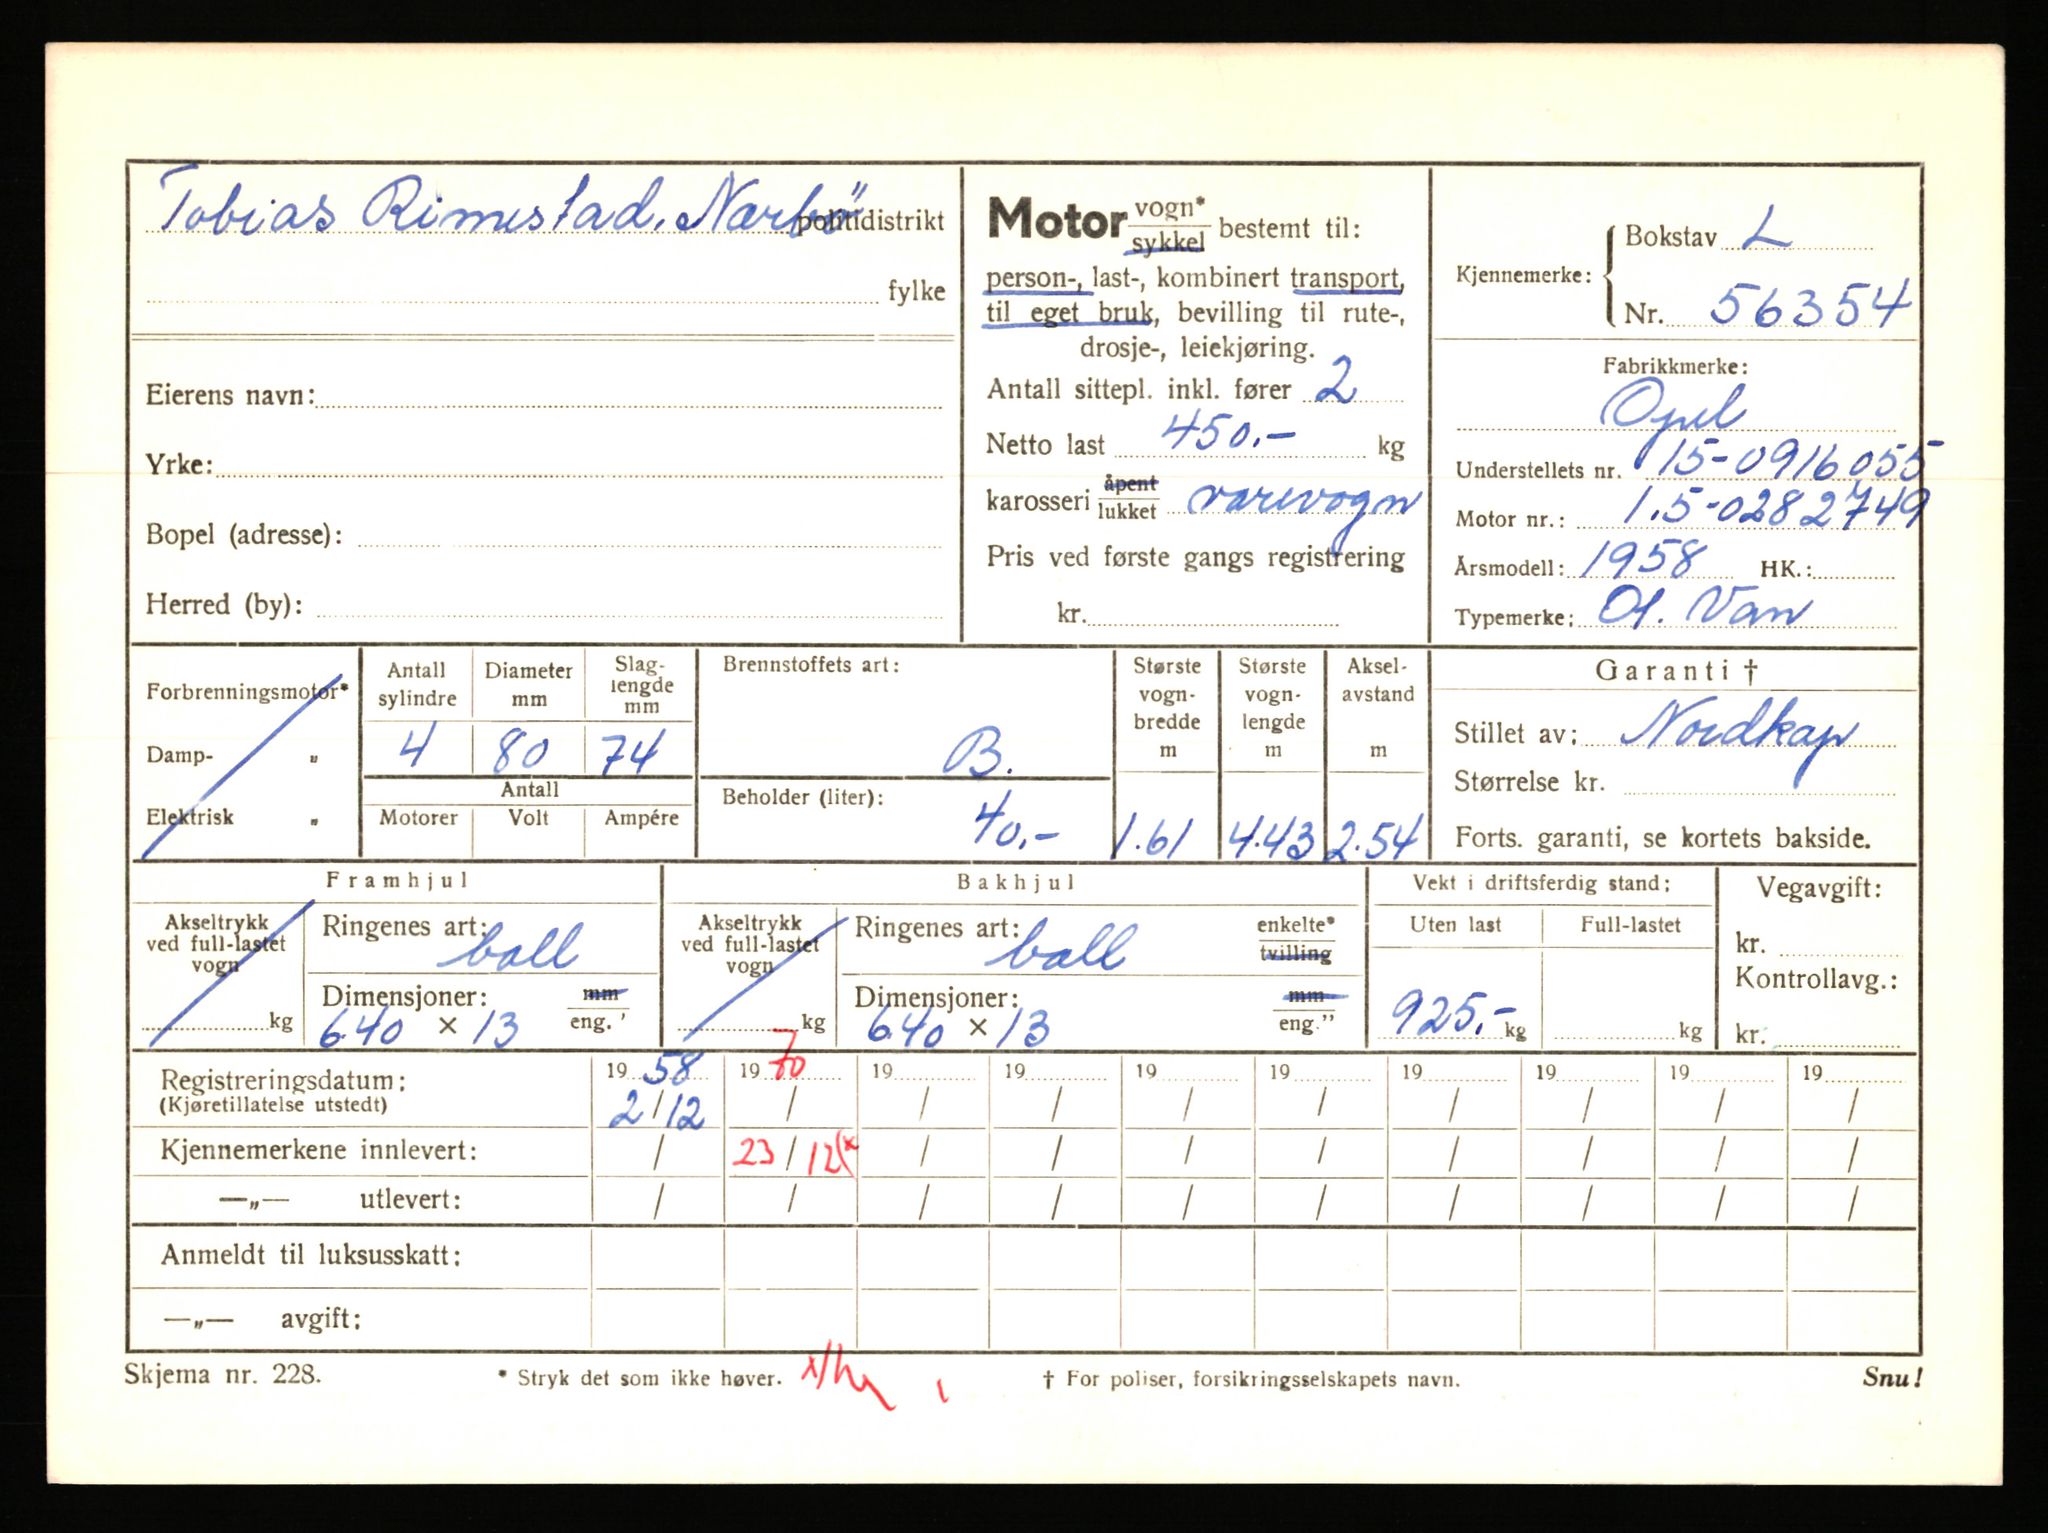 Tobias Rimestad, Nærbö politidistrikt
fylke
Eierens navn:
Yrke:
Bopel (adresse):
Herred (by):
Motor vogn* sykkel bestemt til:
person-, last-, kombinert transport,
til eget bruk, bevilling til rute-,
drosje-, leiekjøring.
Antall sittepl. inkl. fører 2
Netto last 450.- kg
karosseri åpent lukket varevogn
Pris ved første gangs registrering
kr.
Kjennemerke: Bokstav L
Nr. 56354
Fabrikkmerke:
Opel
Understellets nr. 15-0916055
Motor nr.: 1.5-0282749
Årsmodell: 1958 HK.:
Typemerke: Ol. Van
Forbrenningsmotor*
Damp- „
Elektrisk „
Antall sylindre
Diameter mm
Slag-lengde mm
4 80 74
Antall
Motorer Volt Ampére
Brennstoffets art:
B.
Beholder (liter):
40.-
Største vogn-bredde m
1.61
Største vogn-lengde m
4.43
Aksel-avstand m
2.54
Garanti †
Stillet av: Nordkap
Størrelse kr.
Forts. garanti, se kortets bakside.
Framhjul
Akseltrykk
ved full-lastet
vogn
kg
Ringenes art:
ball
Dimensjoner: mm
640 × 13 eng."
Bakhjul
Akseltrykk
ved full-lastet
vogn
kg
Ringenes art: enkelte*
ball tvilling
Dimensjoner: mm
640 × 13 eng."
Vekt i driftsferdig stand:
Uten last Full-lastet
925.- kg kg
Vegavgift:
kr.
Kontrollavg.:
kr.
Registreringsdatum: 19 58 19 70 19 19 19 19 19 19 19 19
(Kjøretillatelse utstedt) 2/12 / / / / / / / / /
Kjennemerkene innlevert: / 23/12(x / / / / / / / /
—„— utlevert: / / / / / / / / / /
Anmeldt til luksusskatt:
—„— avgift:
Skjema nr. 228. * Stryk det som ikke høver. † For poliser, forsikringsselskapets navn. Snu!